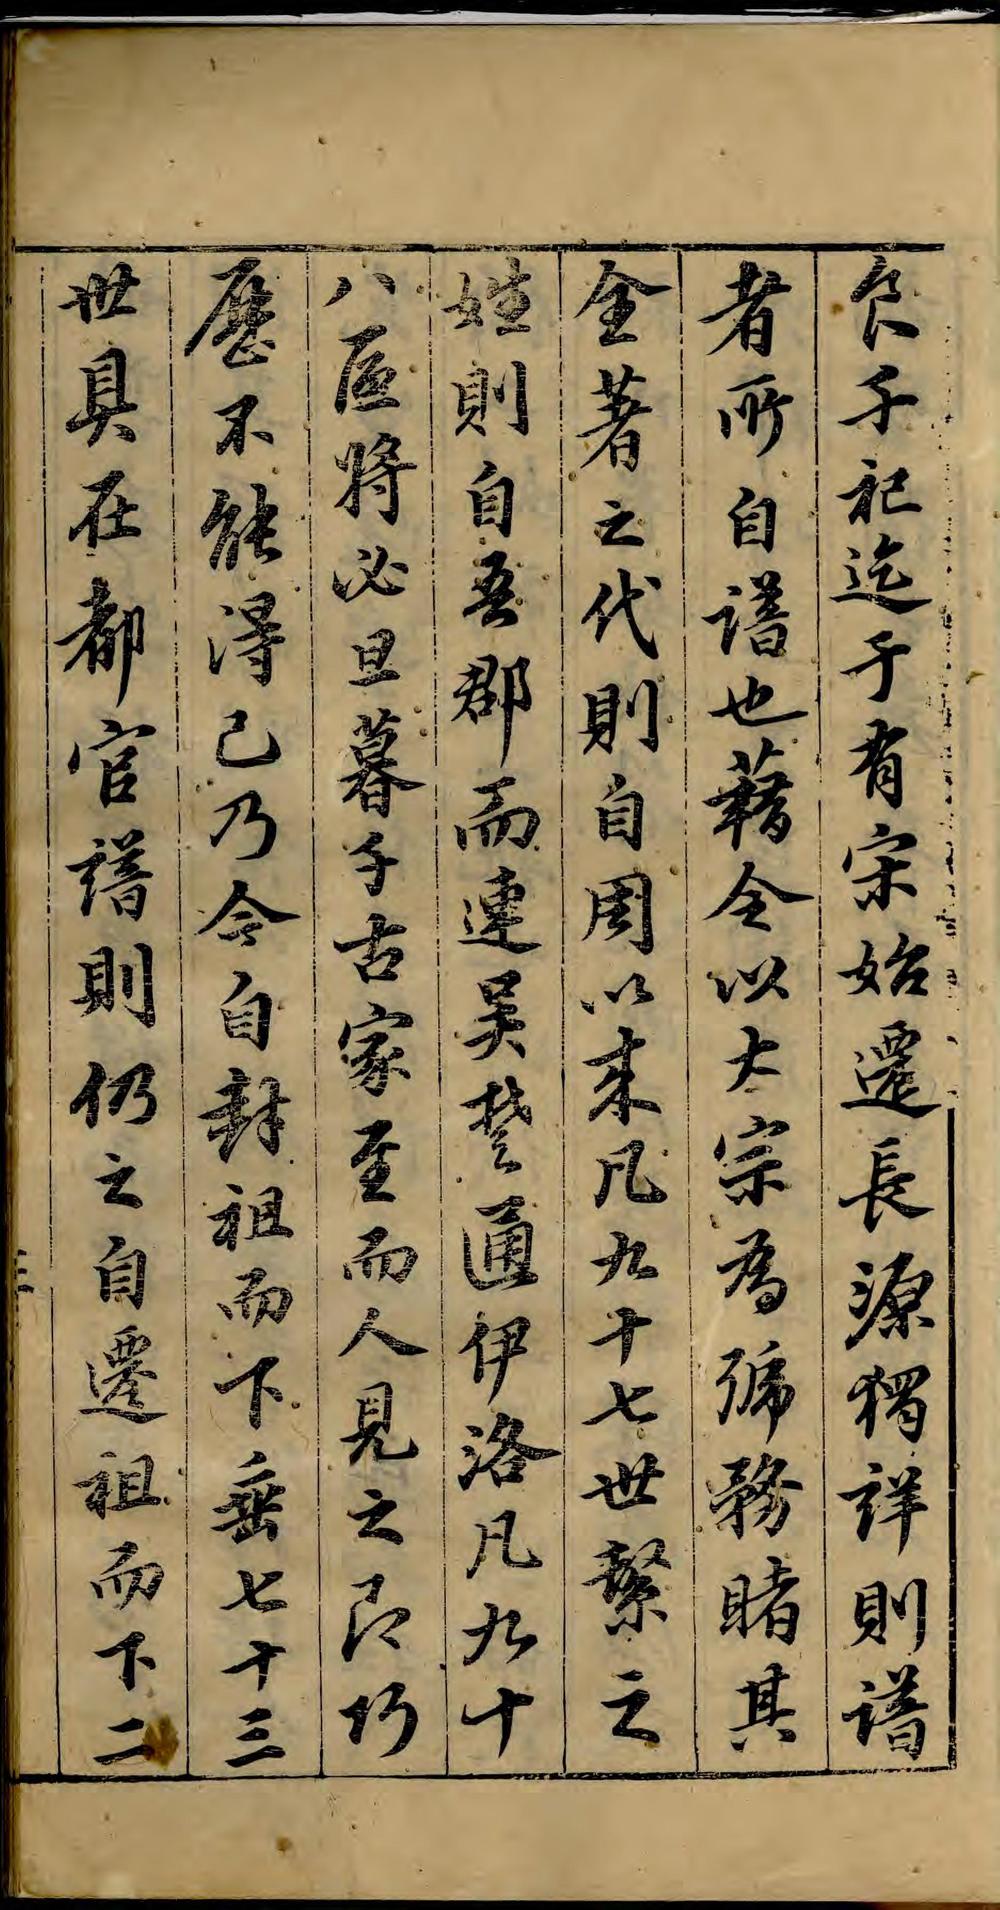 食于祀迄于有宋始遷長源獨詳則譜
者所自譜也藉令以大宗為號務睹其
全著之代則自周以來凡九十七世繫之
姓則自吾郡而連吳楚通伊洛凡九十
八區將必旦暮千古家至而人見之即巧
歷不能得已乃今自封祖而下垂七十三
世具在都官譜則仍之自遷祖而下二